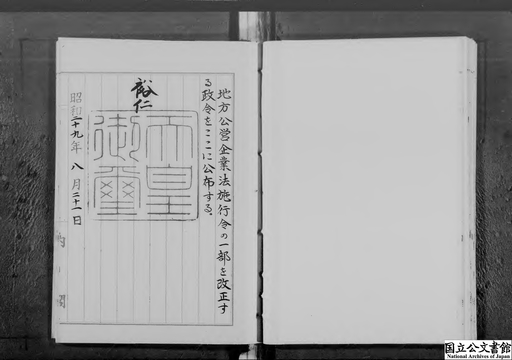 地方公営企業法施行令の一部を改正す
る政令をここに公布する。
裕仁
天皇
御璽
昭和二十九年八月二十一日
内閣
国立公文書館
National Archives of Japan